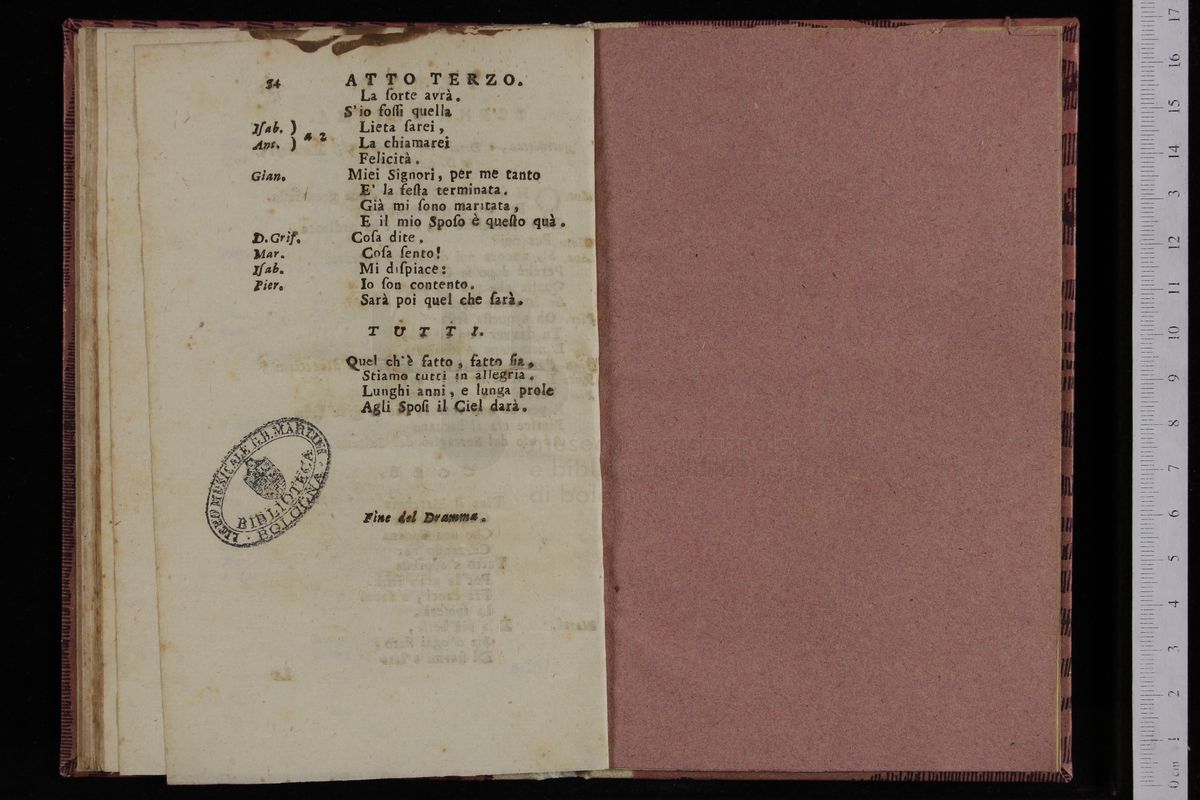 34 ATTO TERZO.
La ſorte avrà.
S'io foſſi quella
Iſab. ) a 2 Lieta ſarei,
Ant. ) La chiamarei
Felicità.
Gian. Miei Signori, per me tanto
E' la feſta terminata.
Già mi ſono maritata,
E il mio Spoſo è queſto quà.
D. Grif. Coſa dite.
Mar. Coſa ſento!
Iſab. Mi diſpiace:
Pier. Io ſon contento.
Sarà poi quel che ſarà.
TUTTI.
Quel ch'è fatto, fatto ſia,
Stiamo tutti in allegria.
Lunghi anni, e lunga prole
Agli Spoſi il Ciel darà.
LICEO MUSICALE G.B. MARTINI
BIBLIOTECA
BOLOGNA
Fine del Dramma.
museo
e biblioteca
di bologna
0 cm 1 2 3 4 5 6 7 8 9 10 11 12 13 14 15 16 17